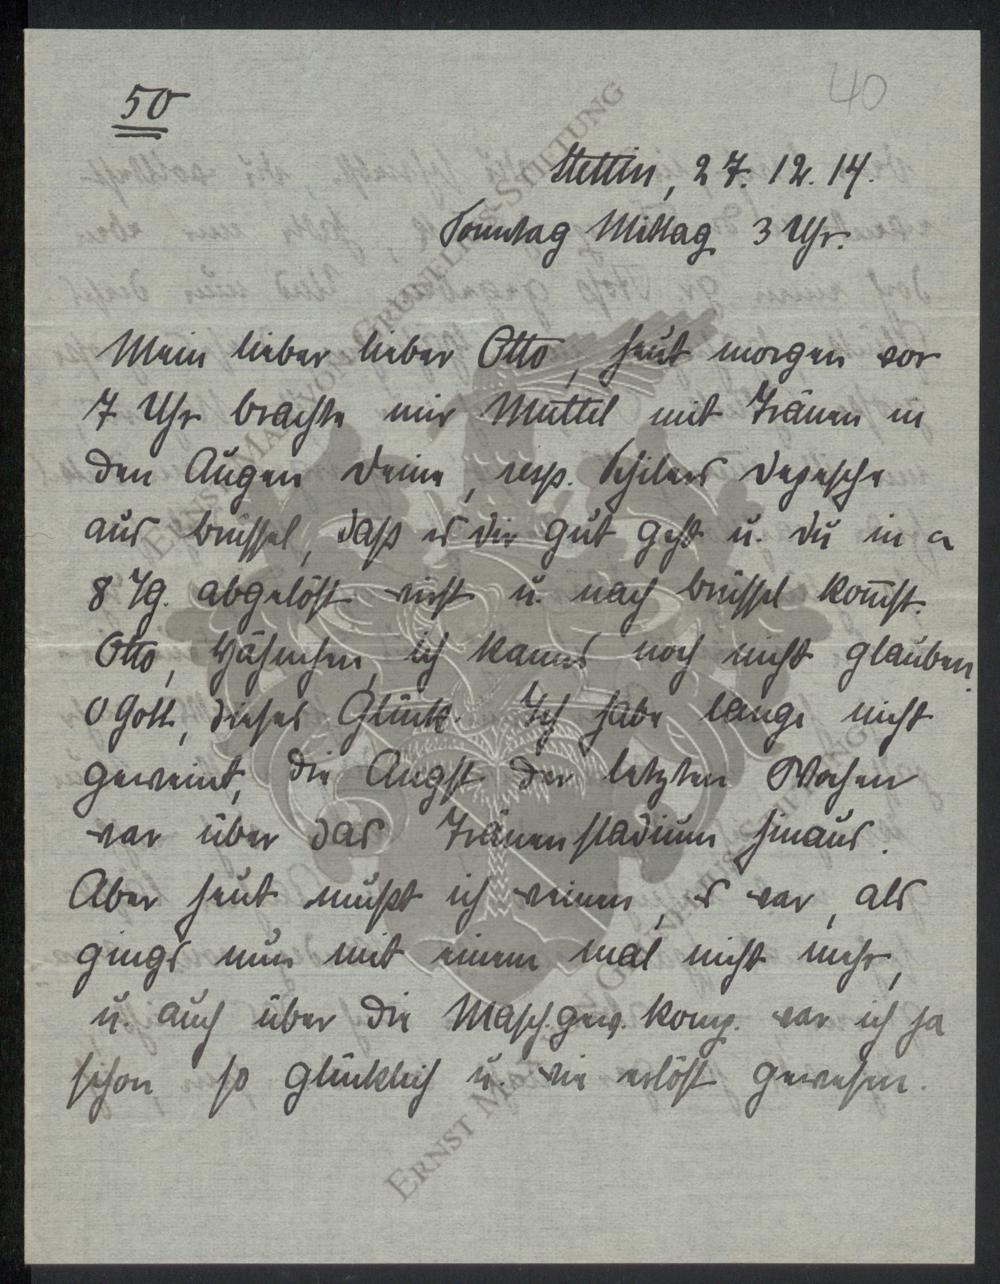 50
40
Stettin, 27. 12. 14.
Sonntag Mittag 3 Uhr.
Mein lieber lieber Otto, heut morgen vor
7 Uhr brachte mir Muttel mit Tränen in
den Augen Deine, resp. Depesche
aus Brüssel, daß es Dir gut geht u. Du in ca
8 Tg. abgelöst wirst u. nach Brüssel kommst.
Otto, Hähnchen, ich kanns noch nicht glauben.
O Gott, dieses Glück. Ich habe lange nicht
geweint, die Angst der letzten Wochen
war über das Tränenstadium hinaus.
Aber heut mußt ich weinen, es war, als
gings nun mit einem mal nicht mehr,
u. auch über die Masch.gew. komp. war ich ja
schon so glücklich u. wie erlöst gewesen.
ERNST MAGNUS VON GRUNELIUS-STIFTUNG
ERNST MAGNUS VON GRUNELIUS-STIFTUNG